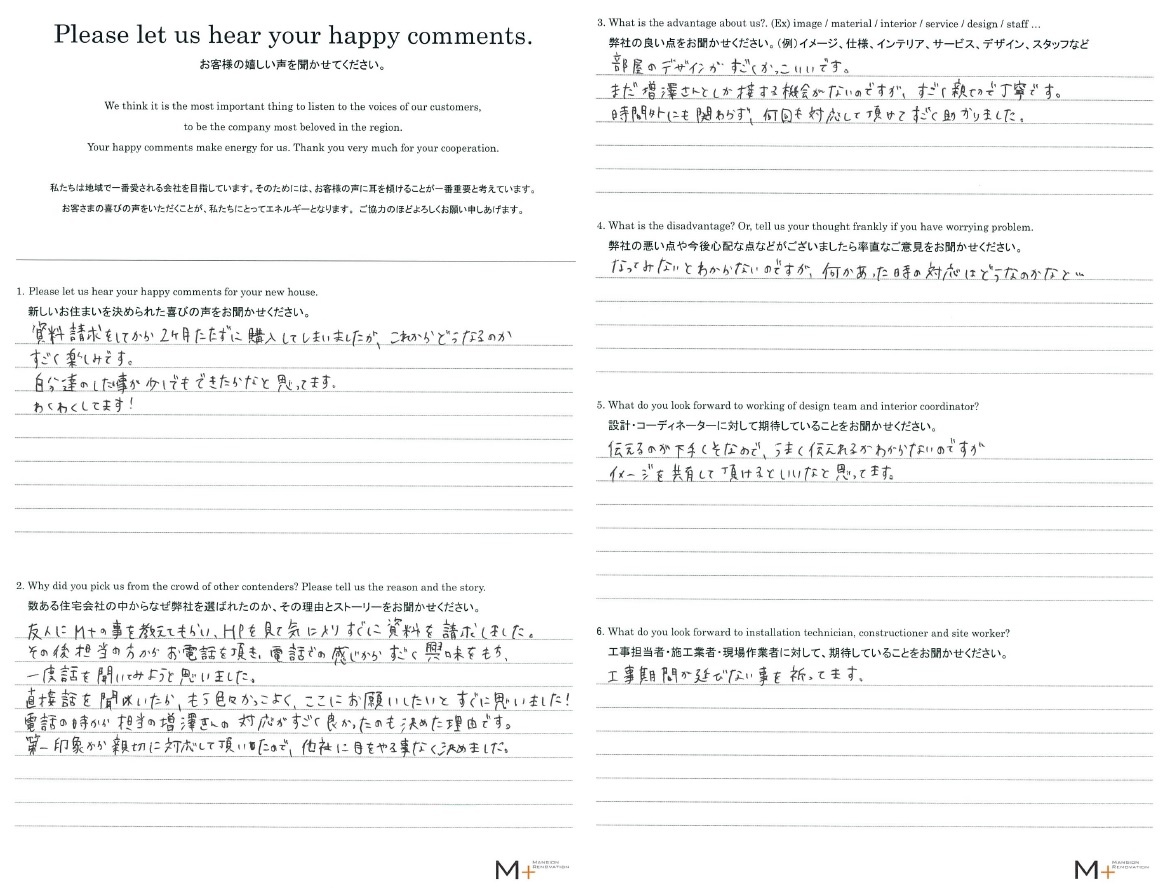 Please let us hear your happy comments.
お客様の嬉しい声を聞かせてください。
We think it is the most important thing to listen to the voices of our customers,
to be the company most beloved in the region.
Your happy comments make energy for us. Thank you very much for your cooperation.
私たちは地域で一番愛される会社を目指しています。そのためには、お客様の声に耳を傾けることが一番重要と考えています。
お客さまの喜びの声をいただくことが、私たちにとってエネルギーとなります。ご協力のほどよろしくお願い申しあげます。
1. Please let us hear your happy comments for your new house.
新しいお住まいを決められた喜びの声をお聞かせください。
資料請求をしてから2ヶ月たたずに購入してしまいましたが、これからどうなるのか
すごく楽しみです。
自分達のした事が少しでもできたらなと思ってます。
わくわくしてます!
2. Why did you pick us from the crowd of other contenders? Please tell us the reason and the story.
数ある住宅会社の中からなぜ弊社を選ばれたのか、その理由とストーリーをお聞かせください。
友人にM+の事を教えてもらい、HPを見て気に入りすぐに資料を請求しました。
その後担当の方からお電話を頂き、電話での感じからすごく興味をもち、
一度話を聞いてみようと思いました。
直接話を聞いたら、もう色々かっこよく、ここにお願いしたいとすぐに思いました!
電話の時から担当の増澤さんの対応がすごく良かったのも決めた理由です。
第一印象から親切に対応して頂いたので、他社に目をやる事なく決めました。
M+ MANSION RENOVATION
3. What is the advantage about us?. (Ex) image / material / interior / service / design / staff ...
弊社の良い点をお聞かせください。(例)イメージ、仕様、インテリア、サービス、デザイン、スタッフなど
部屋のデザインがすごくかっこいいです。
まだ増澤さんとしか接する機会がないのですが、すごく親切で丁寧です。
時間外にも関わらず、何回も対応して頂けてすごく助かりました。
4. What is the disadvantage? Or, tell us your thought frankly if you have worrying problem.
弊社の悪い点や今後心配な点などがございましたら率直なご意見をお聞かせください。
なってみないとわからないのですが、何かあった時の対応はどうなのかなと…
5. What do you look forward to working of design team and interior coordinator?
設計・コーディネーターに対して期待していることをお聞かせください。
伝えるのが下手くそなので、うまく伝えれるかわからないのですが
イメージを共有して頂けるといいなと思ってます。
6. What do you look forward to installation technician, constructioner and site worker?
工事担当者・施工業者・現場作業者に対して、期待していることをお聞かせください。
工事期間が延びない事を祈ってます。
M+ MANSION RENOVATION